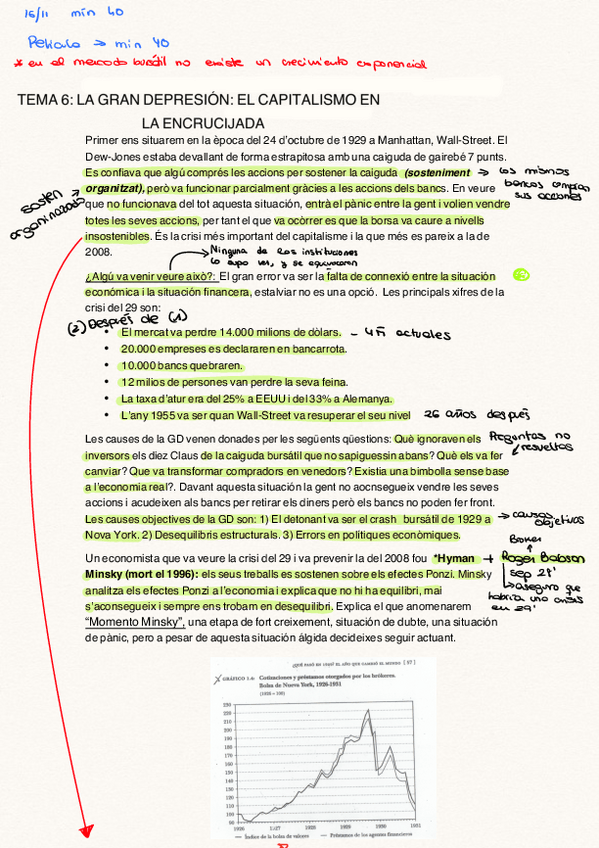 16/11 min 40
Película → min 40
* en el mercado bursátil no existe un crecimiento exponencial
TEMA 6: LA GRAN DEPRESIÓN: EL CAPITALISMO EN
LA ENCRUCIJADA
Primer ens situarem en la època del 24 d'octubre de 1929 a Manhattan, Wall-Street. El
Dew-Jones estaba devallant de forma estrapitosa amb una caiguda de gairebé 7 punts.
Es confiava que algú comprés les accions per sostener la caiguda (sosteniment
organitzat), però va funcionar parcialment gràcies a les accions dels bancs. En veure
que no funcionava del tot aquesta situación, entrà el pànic entre la gent i volien vendre
totes les seves accions, per tant el que va ocórrer es que la borsa va caure a nivells
insostenibles. És la crisi més important del capitalisme i la que més es pareix a la de
2008.
→ los mismos
bancos compran
sus acciones
sosten
organizado
Ninguna de las instituciones
lo supo ver, y se equivocaron
¿Algú va venir veure això?: El gran error va ser la falta de connexió entre la situación
económica i la situación financera, estalviar no es una opció. Les principals xifres de la
crisi del 29 son:
(2) Después de (1)
• El mercat va perdre 14.000 milions de dòlars. – 4B actuales
• 20.000 empreses es declararen en bancarrota.
• 10.000 bancs quebraren.
• 12 milios de persones van perdre la seva feina.
• La taxa d'atur era del 25% a EEUU i del 33% a Alemanya.
• L'any 1955 va ser quan Wall-Street va resuperar el seu nivel 26 años después
Les causes de la GD venen donades per les següents qüestions: Què ignoraven els
inversors els diez Claus de la caiguda bursàtil que no sapiguessin abans? Què els va fer
canviar? Que va transformar compradors en venedors? Existia una bimbolla sense base
a l'economia real?. Davant aquesta situación la gent no aocnsegueix vendre les seves
accions i acudeixen als bancs per retirar els diners però els bancs no poden fer front.
Les causes objectives de la GD son: 1) El detonant va ser el crash bursàtil de 1929 a
Nova York. 2) Desequilibris estructurals. 3) Errors en polítiques econòmiques.
Preguntas no
resueltas
→ causas
objetivas
Un economista que va veure la crisi del 29 i va prevenir la del 2008 fou *Hyman
Minsky (mort el 1996): els seus treballs es sostenen sobre els efectes Ponzi. Minsky
analitza els efectes Ponzi al'economia i explica que no hi ha equilibri, mai
s'aconsegueix i sempre ens trobam en desequilibri. Explica el que anomenarem
"Momento Minsky", una etapa de fort creixement, situación de dubte, una situación
de pànic, pero a pesar de aquesta situación álgida decideixes seguir actuant.
Broker
+ Roger Babson
sep 29'
→ aseguro que
habría una crisis
en 29'
¿QUÉ PASÓ EN 1929? EL AÑO QUE CAMBIÓ EL MUNDO [57]
GRÁFICO 1.6. Cotizaciones y préstamos otorgados por los brókeres.
Bolsa de Nueva York, 1926-1931
(1926 = 100)
230
220
210
200
190
180
170
160
150
140
130
120
110
100
90
1926 1927 1928 1929 1930 1931
Índice de la bolsa de valores Préstamos de los agentes financieros